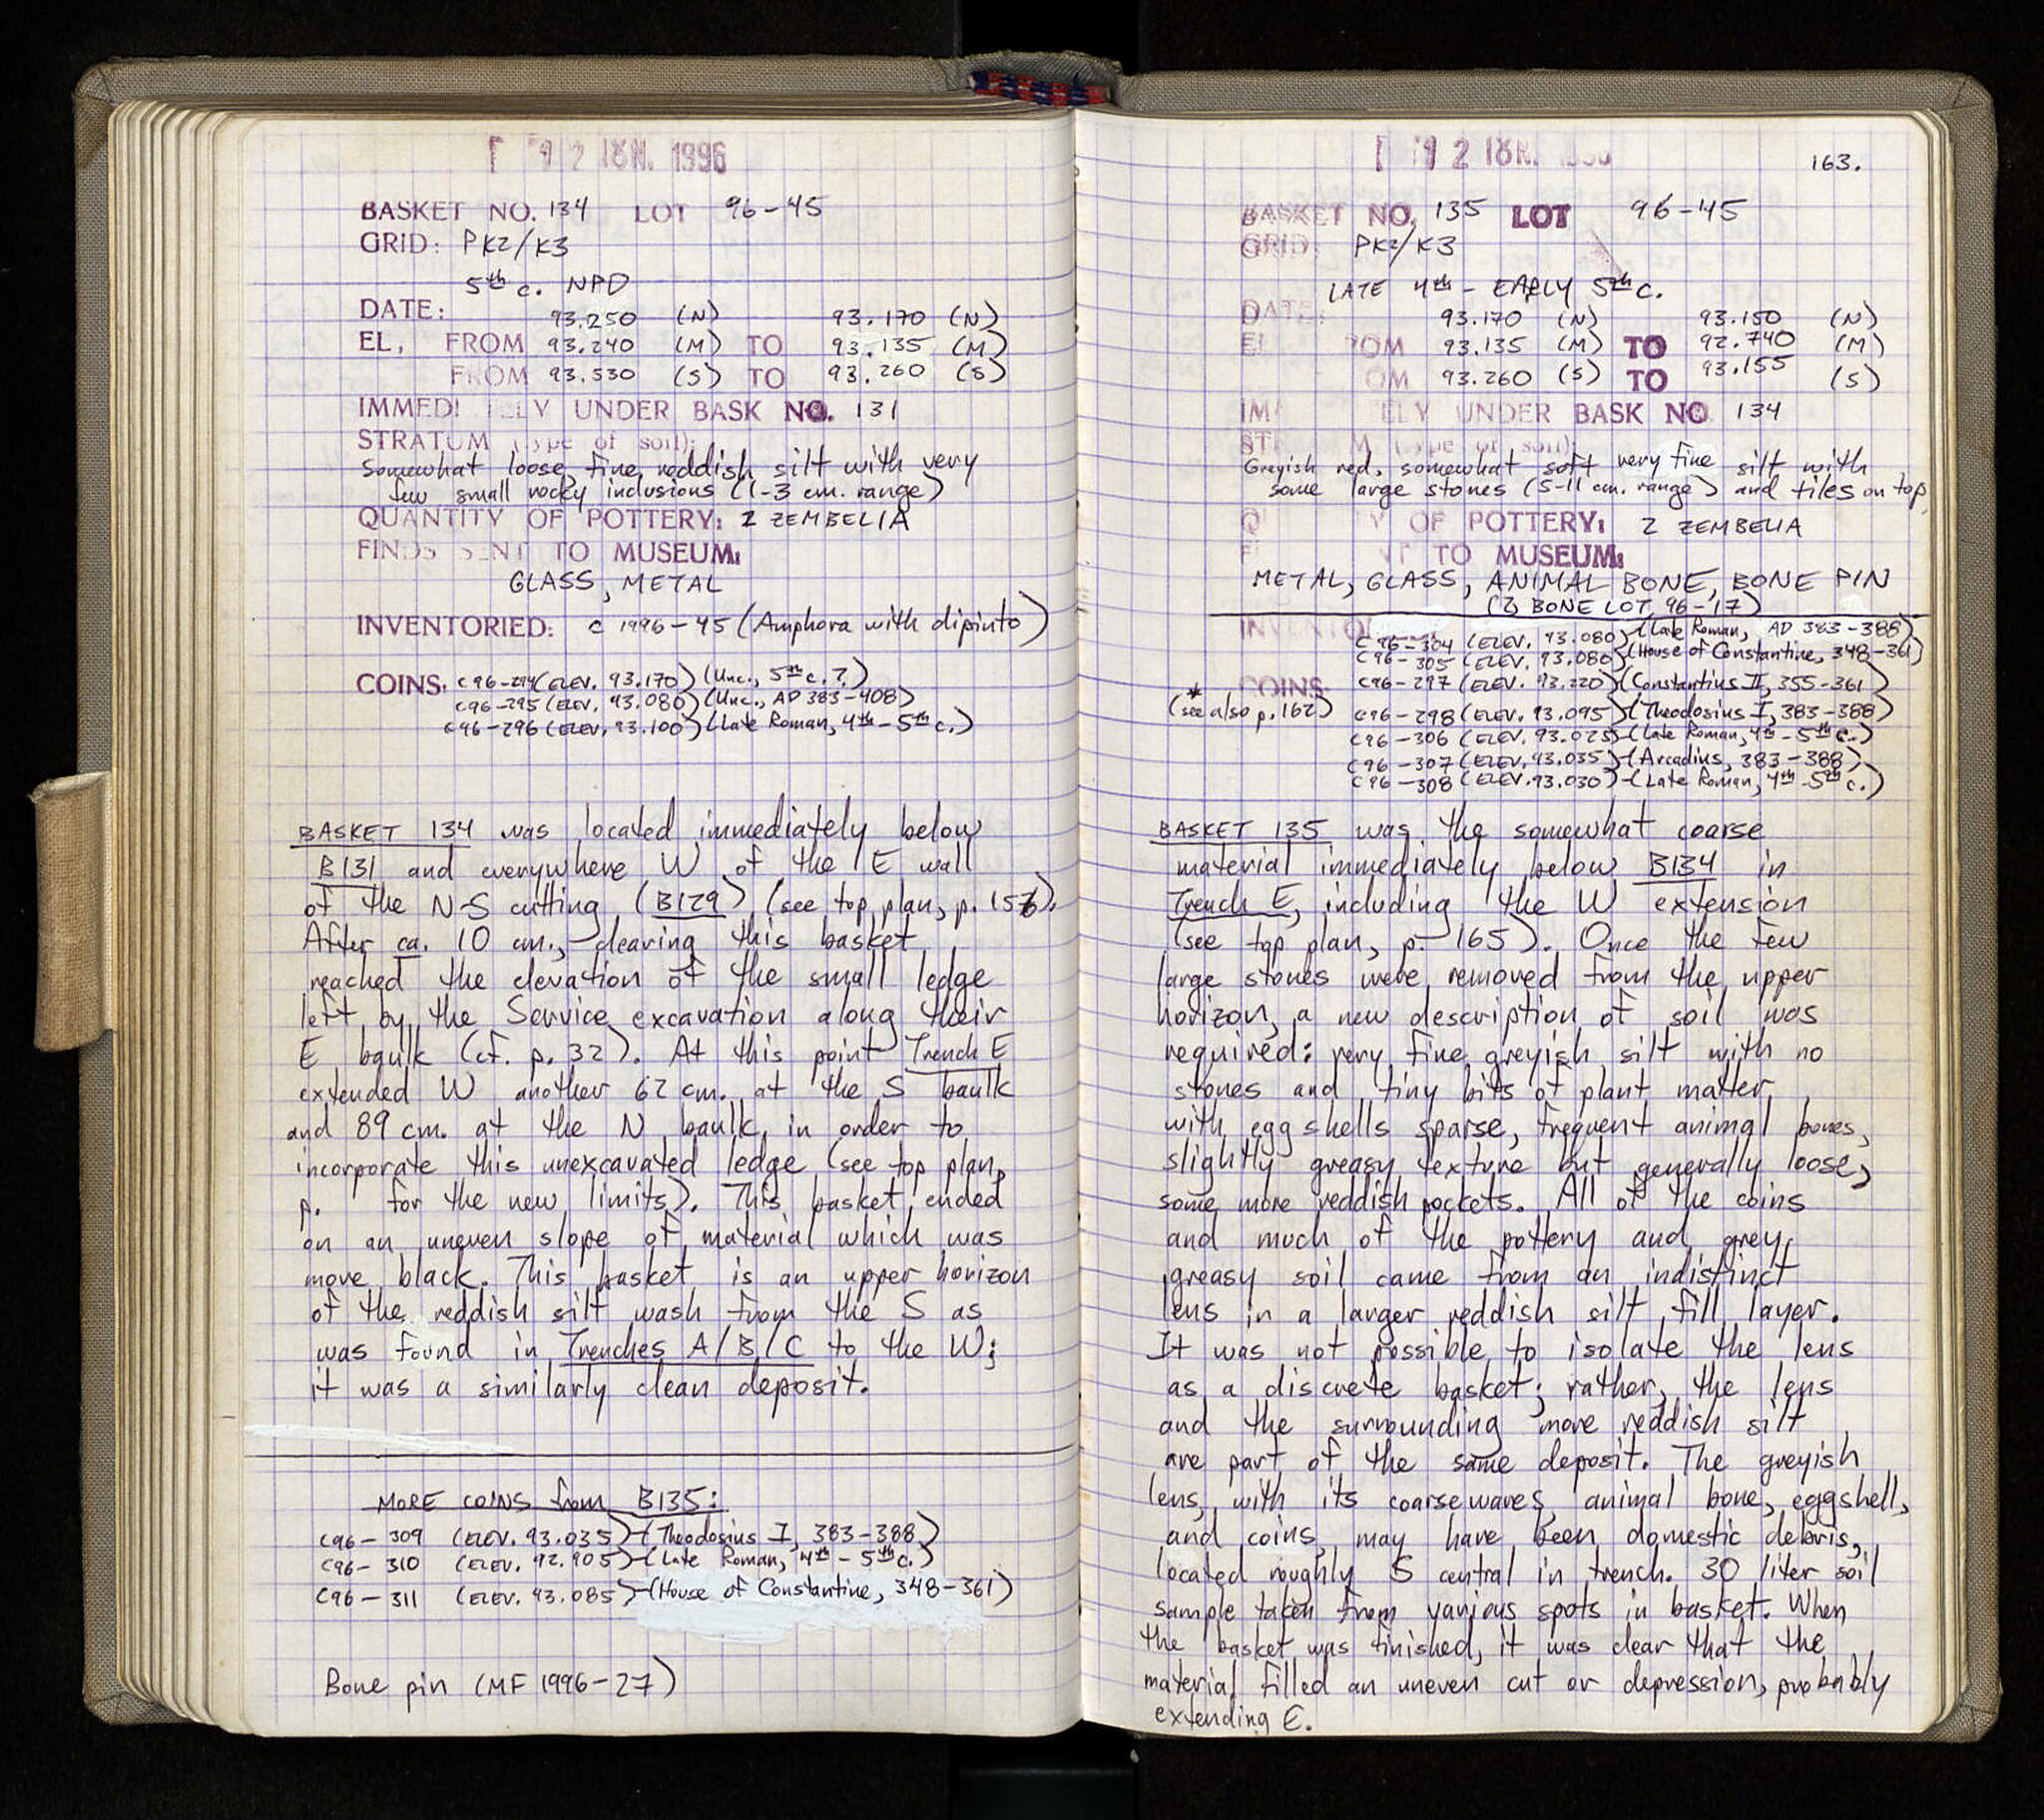 12 ΙΟΥΝ. 1996
BASKET NO. 134 LOT 96-45
GRID: PK2/K3
5th c. NPD
DATE:
93.250 (N) 93.170 (N)
EL, FROM 93.240 (M) TO 93.135 (M)
FROM 93.530 (S) TO 93.260 (S)
IMMEDI ELY UNDER BASK NO. 131
STRATUM (type of soil):
Somewhat loose, fine reddish silt with very
few small rocky inclusions (1-3 cm. range)
QUANTITY OF POTTERY: 2 ZEMBELIA
FINDS SENT TO MUSEUM:
GLASS, METAL
INVENTORIED: C 1996-45 (Amphora with dipinto)
COINS. C96-294 (ELEV. 93.170) (Unc., 5th c.?)
C96-295 (ELEV. 93.080) (Unc., AD 383-408)
C96-296 (ELEV. 93.100) (Late Roman, 4th-5th c.)
BASKET 134 was located immediately below
B131 and everywhere W of the E wall
of the N-S cutting (B129) (see top plan, p. 156).
After ca. 10 cm., clearing this basket
reached the elevation of the small ledge
left by the Service excavation along their
E baulk (cf. p. 32). At this point Trench E
extended W another 62 cm. at the S baulk
and 89 cm. at the N baulk in order to
incorporate this unexcavated ledge (see top plan,
p. for the new limits). This basket ended
on an uneven slope of material which was
more black. This basket is an upper horizon
of the reddish silt wash from the S as
was found in Trenches A/B/C to the W;
it was a similarly clean deposit.
MORE COINS from B135:
C96-309 (ELEV. 93.035)-(Theodosius I, 383-388)
C96-310 (ELEV. 92.905)-(Late Roman, 4th-5th c.)
C96-311 (ELEV. 93.085)-(House of Constantine, 348-361)
Bone pin (MF 1996-27)
12 ΙΟΥΝ. 1996
163.
BASKET NO. 135 LOT 96-45
GRID: PK2/K3
LATE 4th - EARLY 5th c.
DATE:
93.170 (N) 93.150 (N)
EL ROM 93.135 (M) TO 92.740 (M)
OM 93.260 (S) TO 93.155 (S)
IM ELY UNDER BASK NO 134
ST M (type of soil):
Greyish red, somewhat soft very fine silt with
some large stones (5-11 cm. range) and tiles on top
Q Y OF POTTERY: 2 ZEMBELIA
F NT TO MUSEUM:
METAL, GLASS, ANIMAL BONE, BONE PIN
(BONE LOT 96-17)
INVENTO
C96-304 (ELEV. 93.080)-(Late Roman, AD 383-388)
C96-305 (ELEV. 93.080)-(House of Constantine, 348-361)
COINS. C96-297 (ELEV. 93.220)-(Constantius II, 355-361)
* (see also p. 162) C96-298 (ELEV. 93.095)-(Theodosius I, 383-388)
C96-306 (ELEV. 93.025)-(Late Roman, 4th-5th c.)
C96-307 (ELEV. 93.035)-(Arcadius, 383-388)
C96-308 (ELEV. 93.030)-(Late Roman, 4th-5th c.)
BASKET 135 was the somewhat coarse
material immediately below B134 in
Trench E, including the W extension
(see top plan, p. 165). Once the few
large stones were removed from the upper
horizon, a new description of soil was
required: very fine greyish silt with no
stones and tiny bits of plant matter,
with egg shells sparse, frequent animal bones,
slightly greasy texture but generally loose,
some more reddish pockets. All of the coins
and much of the pottery and grey,
greasy soil came from an indistinct
lens in a larger reddish silt fill layer.
It was not possible to isolate the lens
as a discrete basket; rather, the lens
and the surrounding more reddish silt
are part of the same deposit. The greyish
lens, with its coarsewares, animal bone, eggshell,
and coins, may have been domestic debris,
located roughly S central in trench. 30 liter soil
sample taken from various spots in basket. When
the basket was finished, it was clear that the
material filled an uneven cut or depression, probably
extending E.